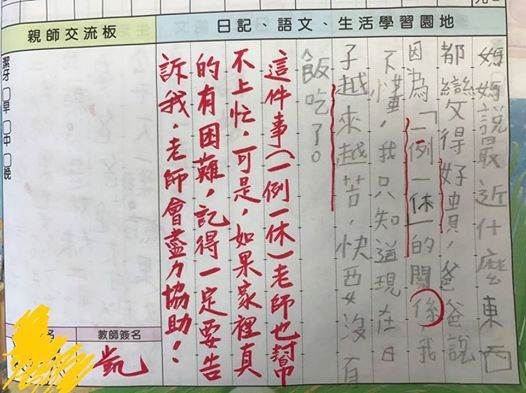 日記、語文、生活學習園地
媽媽說最近什麼東西
都變得好貴，爸爸說
因為「一例一休」的關係我
不懂，我只知道現在日
子越來越苦，快要沒有
飯吃了。
這件事(一例一休)老師也幫
不上忙，可是，如果家裡真
的有困難，記得一定要告
訴我，老師會盡力協助！
親師交流板
潔牙□早□中□晚
教師簽名
凱
名